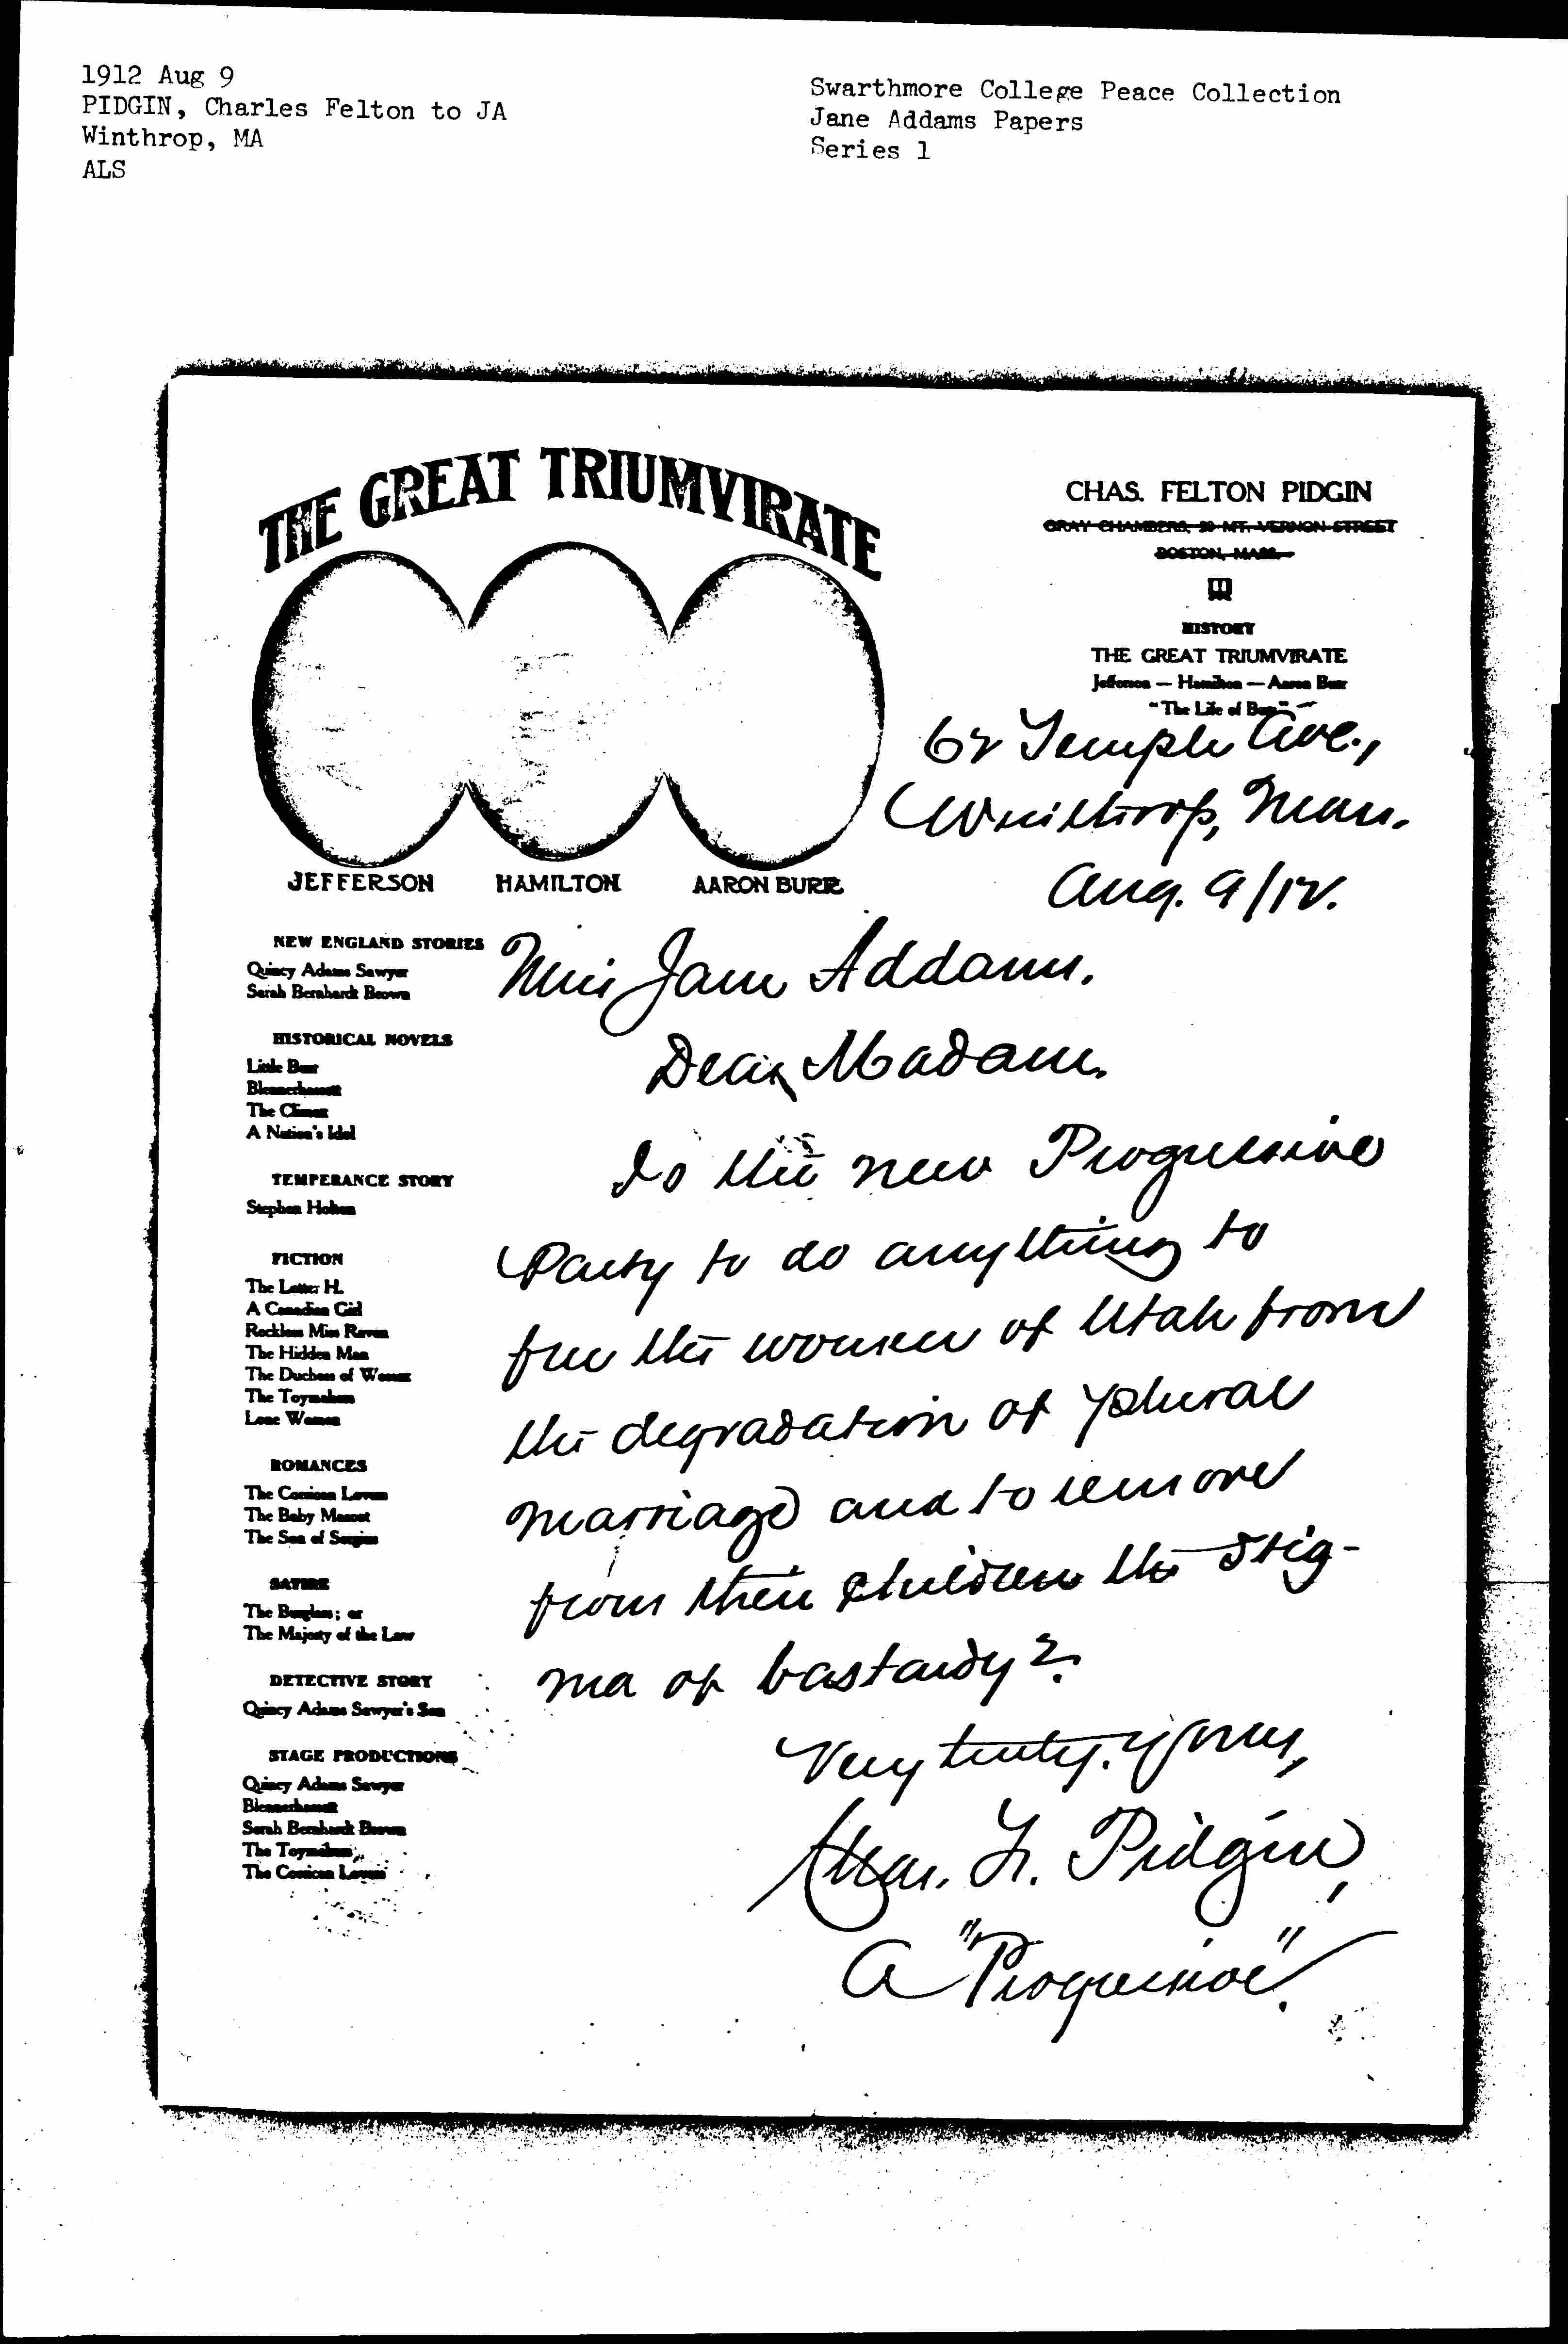 1912 Aug 9
PIDGIN, Charles Felton to JA
Winthrop, MA
ALS
Swarthmore College Peace Collection
Jane Addams Papers
Series 1
THE GREAT TRIUMVIRATE
JEFFERSON HAMILTON AARON BURR
CHAS. FELTON PIDGIN
GRAY CHAMBERS, 20 MT. VERNON STREET
BOSTON, MASS.
HISTORY
THE GREAT TRIUMVIRATE
Jefferson — Hamilton — Aaron Burr
"The Life of Burr"
62 Temple Ave.,
Winthrop, Mass.
Aug. 9/12.
NEW ENGLAND STORIES
Quincy Adams Sawyer
Sarah Bernhardt Brown
HISTORICAL NOVELS
Little Burr
Blennerhassett
The Climax
A Nation's Idol
TEMPERANCE STORY
Stephen Holton
FICTION
The Letter H.
A Canadian Girl
Reckless Miss Raven
The Hidden Man
The Duchess of Women
The Toymakers
Lone Woman
ROMANCES
The Corsican Lovers
The Baby Mascot
The Son of Sergius
SATIRE
The Burglars; or
The Majesty of the Law
DETECTIVE STORY
Quincy Adams Sawyer's Son
STAGE PRODUCTIONS
Quincy Adams Sawyer
Blennerhassett
Sarah Bernhardt Brown
The Toymakers
The Corsican Lovers
Miss Jane Addams.
Dear Madam.
Is the new Progressive
Party to do anything to
free the women of Utah from
the degradation of plural
marriage and to remove
from their children the stig-
ma of bastardy?
Very truly yours,
Chas. F. Pidgin,
A "Progressive".